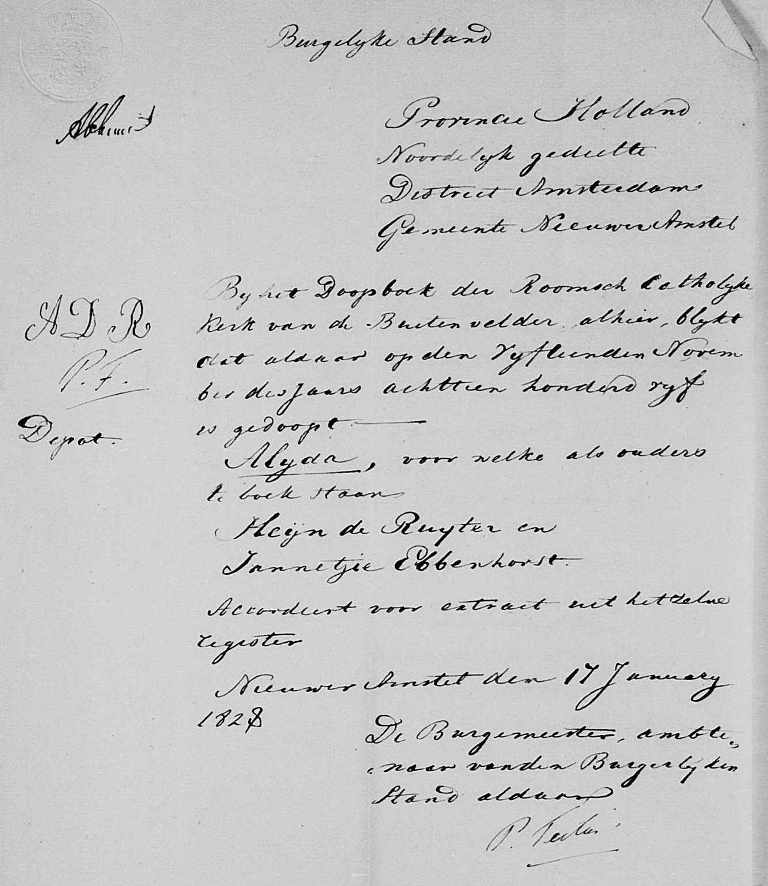 Burgelyke Stand
Provincie Holland
Noordelyk gedeelte
District Amsterdam
Gemeente Nieuwer Amstel
A D R
P. F.
Depot.
By het Doopboek der Roomsch Catholyke
Kerk van de Buitenvelder, alhier, blykt
dat aldaar op den Vyftienden Novem
ber des Jaars achttien honderd vyf
is gedoopt
Alyda, voor welke als ouders
te boek staan
Heijn de Ruyter en
Jannetjie Ebbenhorst.
Accordeert voor extract uit het zelve
register
Nieuwer Amstel den 17 January
1828
De Burgemeester, ambte„
„naar van den Burgerlyken
Stand aldaar
P.